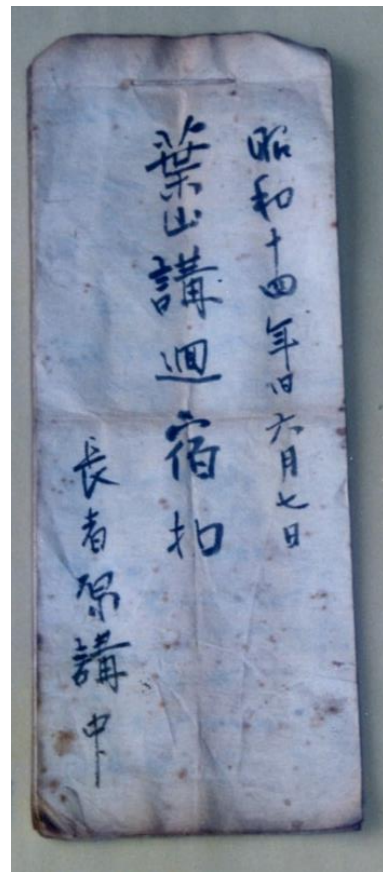 昭和十四年旧六月七日
葉山講廻宿扣
長者原講中